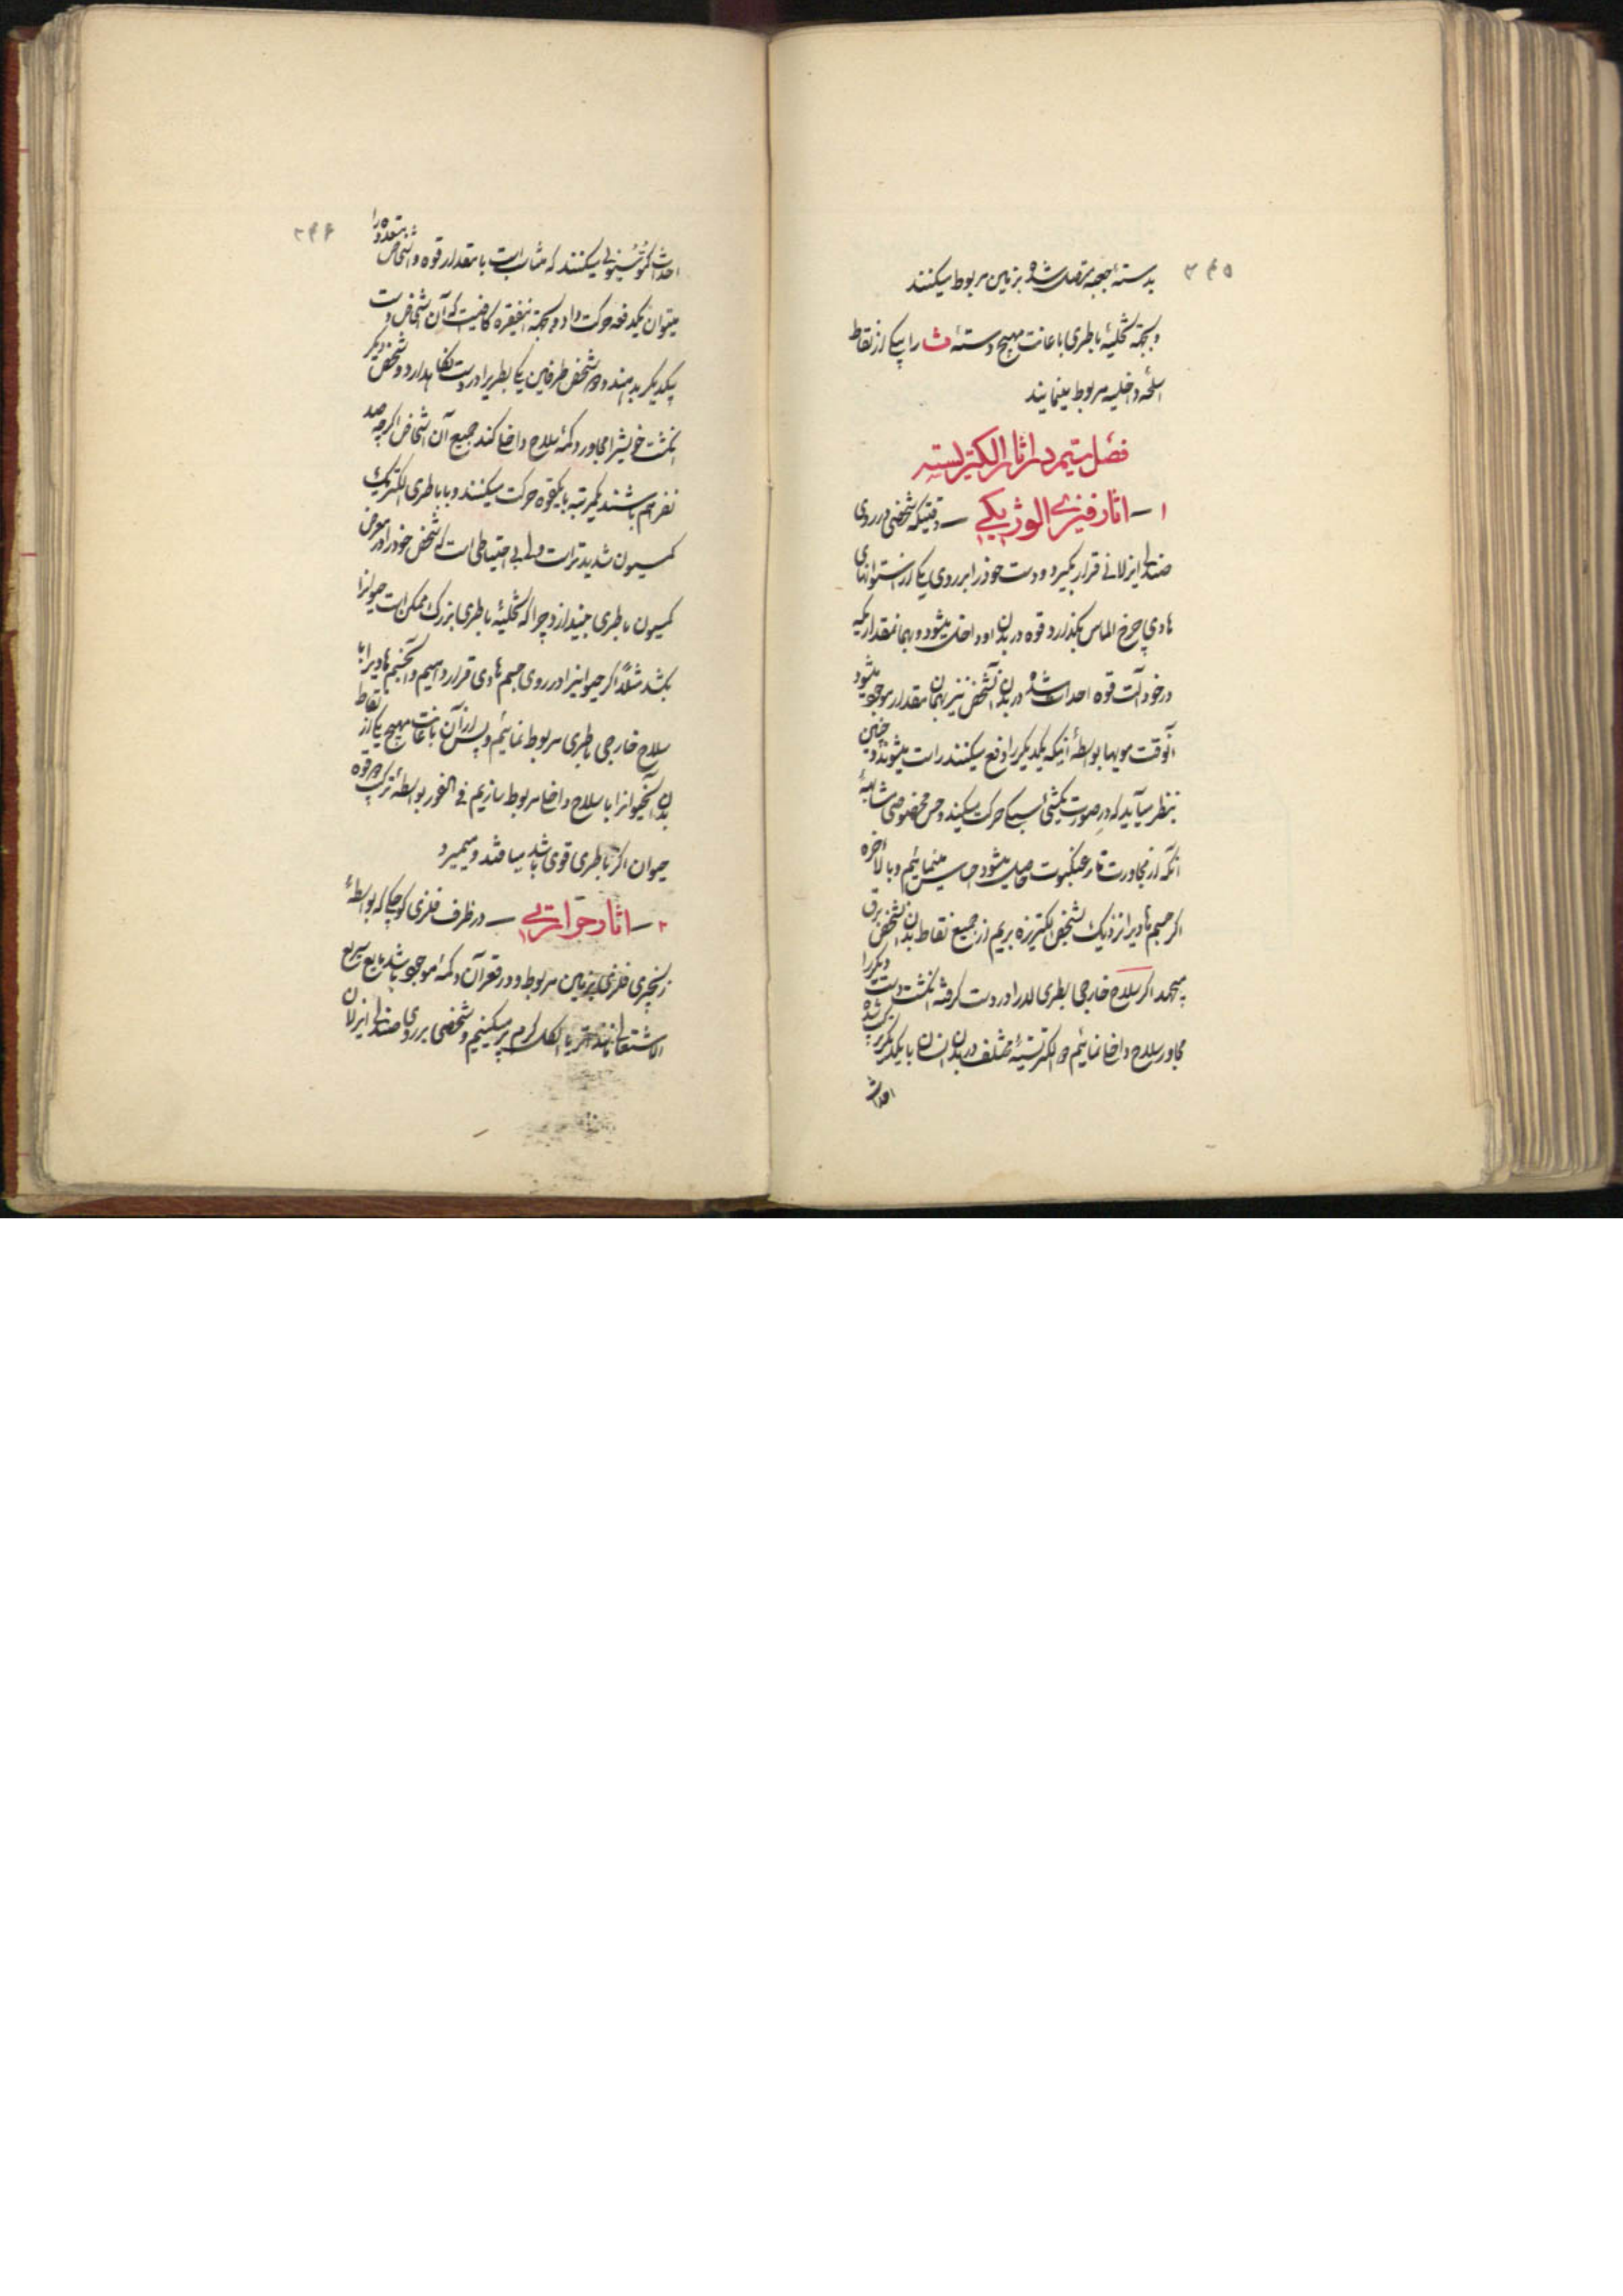 ۲۴۵
بدسته جعبه متصل شده بزمین مربوط میکنند
و بجهة تخلیهٔ باطری باعانت مهیج دستهٔ ث را بیکی از نقاط
اسلحه داخلیه مربوط مینمایند
فصل بیستم در اثار الکتریسته
۱ – اثار فیزیالوژیکی – وقتیکه شخصی در روی
صندلی ایزلانی قرار بگیرد و دست خود را بر روی یکی از استوانهای
هادی چرخ الماس بگذارد قوه در بدن او داخل میشود و بهمانمقداریکه
در خود آلت قوه احداث شده در بدن آنشخص نیز بهمان مقدار موجود میشود
آنوقت مویها بواسطهٔ اینکه یکدیگر را دفع میکنند راست میشوند و چنین
بنظر میآید که در صورت یکشیٔ سبکی حرکت میکند و حس مخصوصی مشابه
آنکه از مجاورت تار عنکبوت حاصل میشود احساس مینمائیم و بالاخره
اگر جسم هادیرا نزدیک بشخص الکتریزه بریم از جمیع نقاط بدن آنشخص برق
میجهد اگر سلاح خارجی بطری لید را در دست گرفته انگشت دست دیگر را
مجاور سلاح داخلی نمائیم دو الکتریستهٔ مختلف در بدن انسان با یکدیگر ترکیب شده
احداث
۲۴۶
احداث کموسیونی میکنند که متناسب است با مقدار قوه و اشخاص متعدده را
میتوان یکدفعه حرکت داد و بجهة اینفقره کافیست که آن اشخاص دست
بیکدیگر بدهند و دو شخص طرفین یکی بطریرا در دست نگاهدارد و شخص دیگر
انگشت خویشرا مجاور دکمهٔ سلاح داخلی کند جمیع آن اشخاص اگر چه صد
نفر هم باشند یکمرتبه بایکقوه حرکت میکنند و با باطری الکتریک
کمسیون شدیدتر است ولی بی احتیاطی است که شخص خود را در معرض
کمسیون باطری بیندازد چرا که تخلیهٔ باطری بزرگ ممکن است حیوانرا
بکشد مثلاً اگر حیوانیرا در روی جسم هادی قرار دهیم و آنجسم هادیرا با
سلاح خارجی باطری مربوط نمائیم و پس از آن باعانت مهیج یکی از نقاط
بدن آنحیوانرا با سلاح داخلی مربوط سازیم فی الفور بواسطهٔ ترکیب دو قوه
حیوان اگر باطری قوی باشد میافتد و میمیرد
۲ – اثار حرارتی – در ظرف فلزی کوچکی که بواسطهٔ
زنجیری فلزی بزمین مربوط و در قعر آن دکمهٔ موجود باشد مایع سریع
الاشتعالی مانند اتر یا الکل گرم پر میکنیم و شخصی بر روی صندلی ایزلان